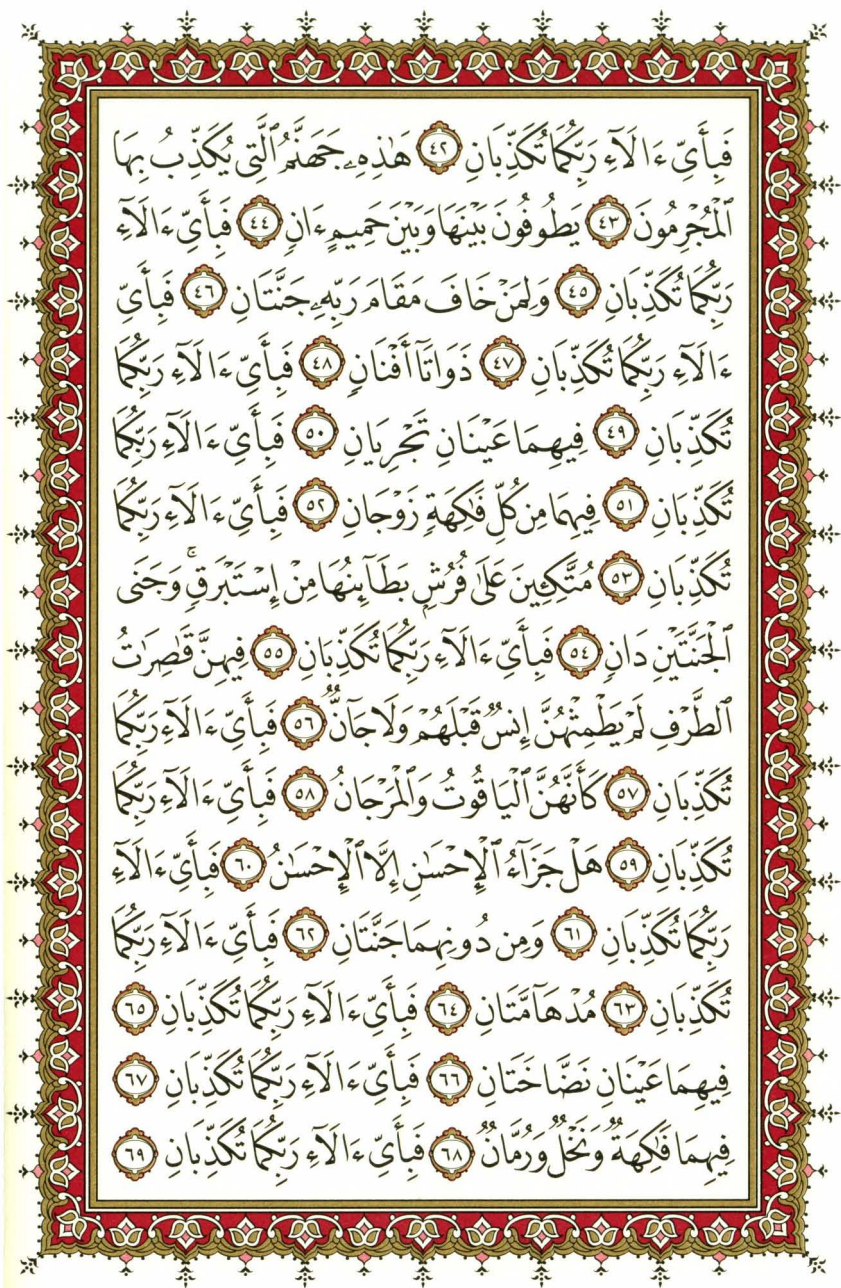 فَبِأَيِّ ءَالَآءِ رَبِّكُمَا تُكَذِّبَانِ ٤٢ هَٰذِهِۦ جَهَنَّمُ ٱلَّتِى يُكَذِّبُ بِهَا
ٱلْمُجْرِمُونَ ٤٣ يَطُوفُونَ بَيْنَهَا وَبَيْنَ حَمِيمٍ ءَانٍ ٤٤ فَبِأَىِّ ءَالَآءِ
رَبِّكُمَا تُكَذِّبَانِ ٤٥ وَلِمَنْ خَافَ مَقَامَ رَبِّهِۦ جَنَّتَانِ ٤٦ فَبِأَىِّ
ءَالَآءِ رَبِّكُمَا تُكَذِّبَانِ ٤٧ ذَوَاتَآ أَفْنَانٍ ٤٨ فَبِأَىِّ ءَالَآءِ رَبِّكُمَا
تُكَذِّبَانِ ٤٩ فِيهِمَا عَيْنَانِ تَجْرِيَانِ ٥٠ فَبِأَىِّ ءَالَآءِ رَبِّكُمَا
تُكَذِّبَانِ ٥١ فِيهِمَا مِن كُلِّ فَٰكِهَةٍ زَوْجَانِ ٥٢ فَبِأَىِّ ءَالَآءِ رَبِّكُمَا
تُكَذِّبَانِ ٥٣ مُتَّكِـِٔينَ عَلَىٰ فُرُشٍۭ بَطَآئِنُهَا مِنْ إِسْتَبْرَقٍ ۚ وَجَنَى
ٱلْجَنَّتَيْنِ دَانٍ ٥٤ فَبِأَىِّ ءَالَآءِ رَبِّكُمَا تُكَذِّبَانِ ٥٥ فِيهِنَّ قَٰصِرَٰتُ
ٱلطَّرْفِ لَمْ يَطْمِثْهُنَّ إِنسٌ قَبْلَهُمْ وَلَا جَآنٌّ ٥٦ فَبِأَىِّ ءَالَآءِ رَبِّكُمَا
تُكَذِّبَانِ ٥٧ كَأَنَّهُنَّ ٱلْيَاقُوتُ وَٱلْمَرْجَانُ ٥٨ فَبِأَىِّ ءَالَآءِ رَبِّكُمَا
تُكَذِّبَانِ ٥٩ هَلْ جَزَآءُ ٱلْإِحْسَٰنِ إِلَّا ٱلْإِحْسَٰنُ ٦٠ فَبِأَىِّ ءَالَآءِ
رَبِّكُمَا تُكَذِّبَانِ ٦١ وَمِن دُونِهِمَا جَنَّتَانِ ٦٢ فَبِأَىِّ ءَالَآءِ رَبِّكُمَا
تُكَذِّبَانِ ٦٣ مُدْهَآمَّتَانِ ٦٤ فَبِأَىِّ ءَالَآءِ رَبِّكُمَا تُكَذِّبَانِ ٦٥
فِيهِمَا عَيْنَانِ نَضَّاخَتَانِ ٦٦ فَبِأَىِّ ءَالَآءِ رَبِّكُمَا تُكَذِّبَانِ ٦٧
فِيهِمَا فَٰكِهَةٌ وَنَخْلٌ وَرُمَّانٌ ٦٨ فَبِأَىِّ ءَالَآءِ رَبِّكُمَا تُكَذِّبَانِ ٦٩